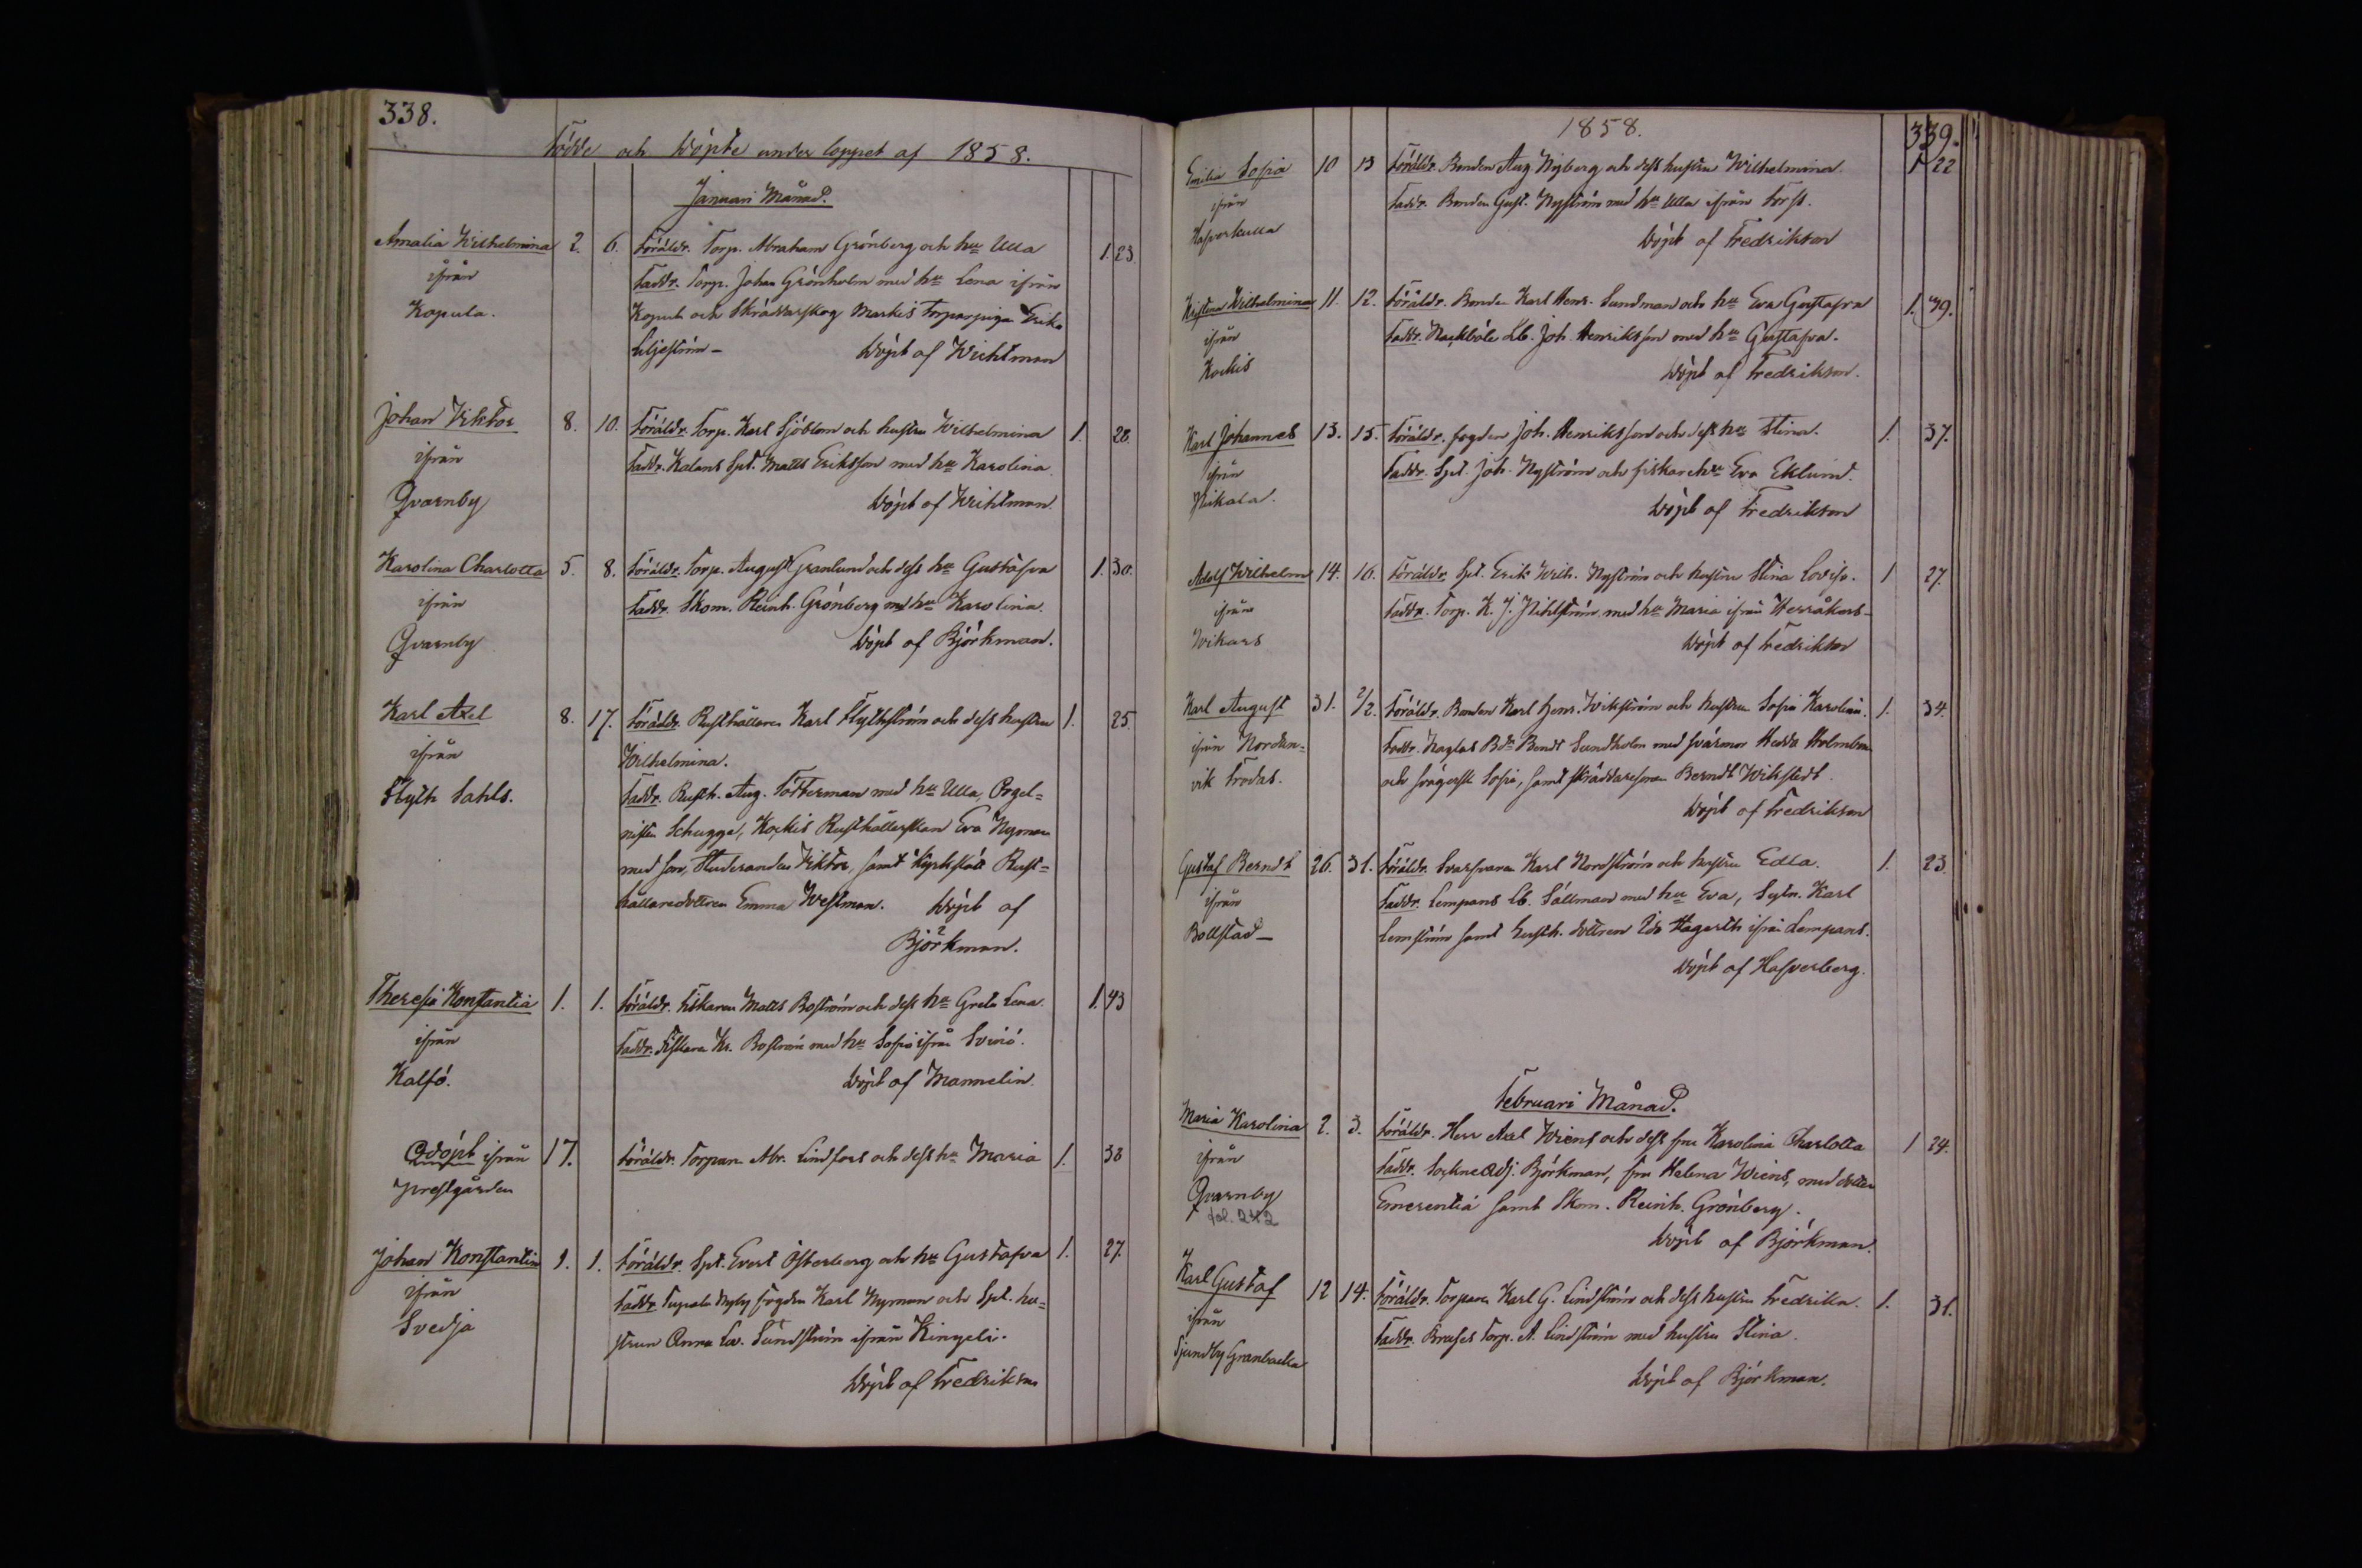 338.
Födde och Döpte under loppet af 1858.
Januari Månad.
Amalia Wilhelmina 2. 6. Föräldr. Torp. Abraham Grönberg och hu Ulla 1. 23.
ifrån Faddr. Torp. Johan Grönholm med hu Lena ifrån
Kopula. Kopula och Skräddarskog Markis Torparpiga Erika
Liljeström – Döpt af Wichtman
Johan Viktor 8. 10. Föräldr. Torp. Karl Sjöblom och hustru Wilhelmina 1. 28.
ifrån Faddr. Kalans Spt. Matts Eriksson med hu Karolina
Qvarnby Döpt af Wichtman.
Karolina Charlotta 5. 8. Föräldr. Torp. August Granlund och dess hu Gustafva 1. 30.
ifrån Faddr. Skom. Reinh. Grönberg med hu Karolina.
Qvarnby Döpt af Björkman.
Karl Axel 8. 17. Föräldr. Rusthållaren Karl Flythström och dess hustru 1. 25.
ifrån Wilhelmina.
Flyth Sahls. Faddr. Rusth. Aug. Tötterman med hu Ulla, Orgel=
nisten Schugge, Kockis Rusthållerskan Eva Nyman
med son, Studeranden Viktor, samt Kyrkstad Rust=
hållaredottren Emma Westman. Döpt af
Björkman.
Theresia Konstantia 1. 1. Föräldr. Fiskaren Matts Boström och dess hu Greta Lena. 1. 43
ifrån Faddr. Fiskaren Kr. Boström med hu Sofia ifrån Svinö.
Kalfö. Döpt af Mannelin.
Odöpt ifrån 17. Föräldr. Torparen Abr. Lindfors och dess hu Maria 1. 38
Prestgården
Johan Konstantin 1. 1. Föräldr. Spt. Evert Österberg och hu Gustafva 1. 27.
ifrån Faddr. Nyby fogden Karl Nyman och Spt. hu=
Svedja strun Anna Lov. Sundström ifrån
Döpt af Fredrikson
1858. 339.
Emilia Sofia 10 13 Föräldr. Bonden Aug Nyberg och dess hustru Wilhelmina. 1 22
ifrån Faddr. Bonden Gust. Nyström med hu Ulla ifrån Forss.
Hafverkulla Döpt af Fredrikson
Kristina Wilhelmina 11. 12. Föräldr. Bonden Karl Henr. Sundman och hu Eva Gustafva 1. 39.
ifrån Faddr. Lb. Joh. Henriksson med hu Gustafva.
Kockis Döpt af Fredrikson.
Karl Johannes 13. 15. Föräldr. fogden Joh. Henriksson och dess hu Stina. 1. 37.
ifrån Faddr. Spt. Joh. Nyström och fiskarehu Eva Eklund.
Pikala. Döpt af Fredrikson
Adolf Wilhelm 14. 16. Föräldr. Spt. Erik Wilh. Nyström och hustru Stina Lovisa. 1 27.
ifrån Faddr. Torp. K. J. Pihlström med hu Maria ifrån Herråkers –
Wikars Döpt af Fredrikson
Karl August 31. 2/2. Föräldr. Bonden Karl Henr. Wikström och hustru Sofia Karolina. 1. 34.
ifrån Norden= Faddr. Bdn Bendt Sundholm med svärmor Hedda Holmberg
vik Frodas. och Sofia, samt skräddaresonen Berndt Wikstedt.
Döpt af Fredrikson
Gustaf Berndt 26. 31. Föräldr. Svarfvaren Karl Nordström och hustru Edla. 1. 23.
ifrån Faddr. Lempans Lb. Sållman med hu Eva, Sytn. Karl
Bollstad – Lemström samt Rusth. dottren Ida Hagerth ifrån Lempans.
Döpt af Hafverberg.
Februari Månad.
Maria Karolina 2. 3. Föräldr. Herr Axel Wiens och dess fru Karolina Charlotta 1 24.
ifrån Faddr. Sockneadj. Björkman, fru Helena Wiens, med dotter
Qvarnby Emerentia samt Skom. Reinh. Grönberg.
fol. 242
Döpt af Björkman.
Karl Gustaf 12 14. Föräldr. Torparen Karl G. Lindström och dess hustru Fredrika. 1. 31.
ifrån Faddr. Bruses Torp. A. Lindström med hustru Stina.
Sjundby Granbacka
Döpt af Björkman.